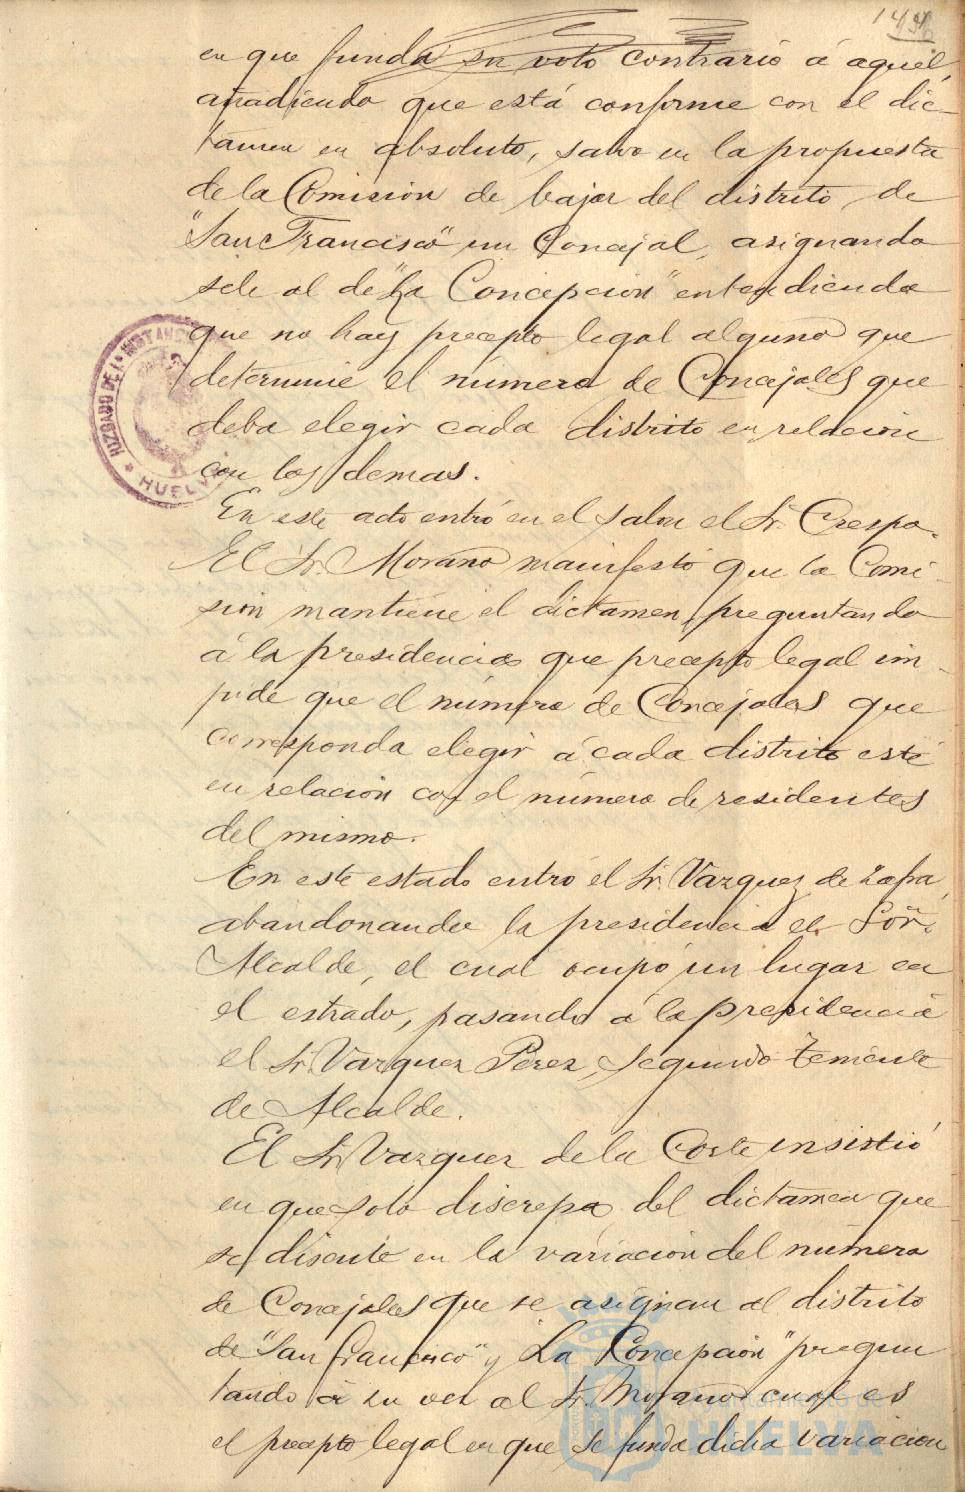 en que funda su voto contrario á aquel,
añadiendo que está conforme con el dic-
tamen en absoluto, salvo en la propuesta
de la Comision de bajar del distrito de
"San Francisco" un Concejal, asignando
sele al de "La Concepcion" entendiendo
que no hay precepto legal alguno que
determine el número de Concejales que
deba elegir cada distrito en relacion
con los demas.
En este acto entró en el salon el Sr. Crespo.
El Sr. Morano manifestó que la Comi-
sion mantiene el dictamen, preguntando
á la presidencia que precepto legal im-
pide que el número de Concejales que
corresponda elegir á cada distrito esté
en relacion con el número de residentes
del mismo.
En este estado entró el Sr. Vazquez de Zafra,
abandonando la presidencia el Señr.
Alcalde, el cual ocupó un lugar en
el estrado, pasando á la presidencia
el Sr. Vazquez Perez, segundo teniente
de Alcalde.
El Sr. Vazquez de la Corte insistió
en que solo discrepa del dictamen que
se discute en la variacion del número
de Concejales que se asignan al distrito
de "San Francisco" y "La Concepcion" pregun
tando á su vez al Sr. Morano cual es
el precepto legal en que se funda dicha variacion
JUZGADO DE 1ª INSTANCIA
HUELVA
Ayuntamiento de
HUELVA